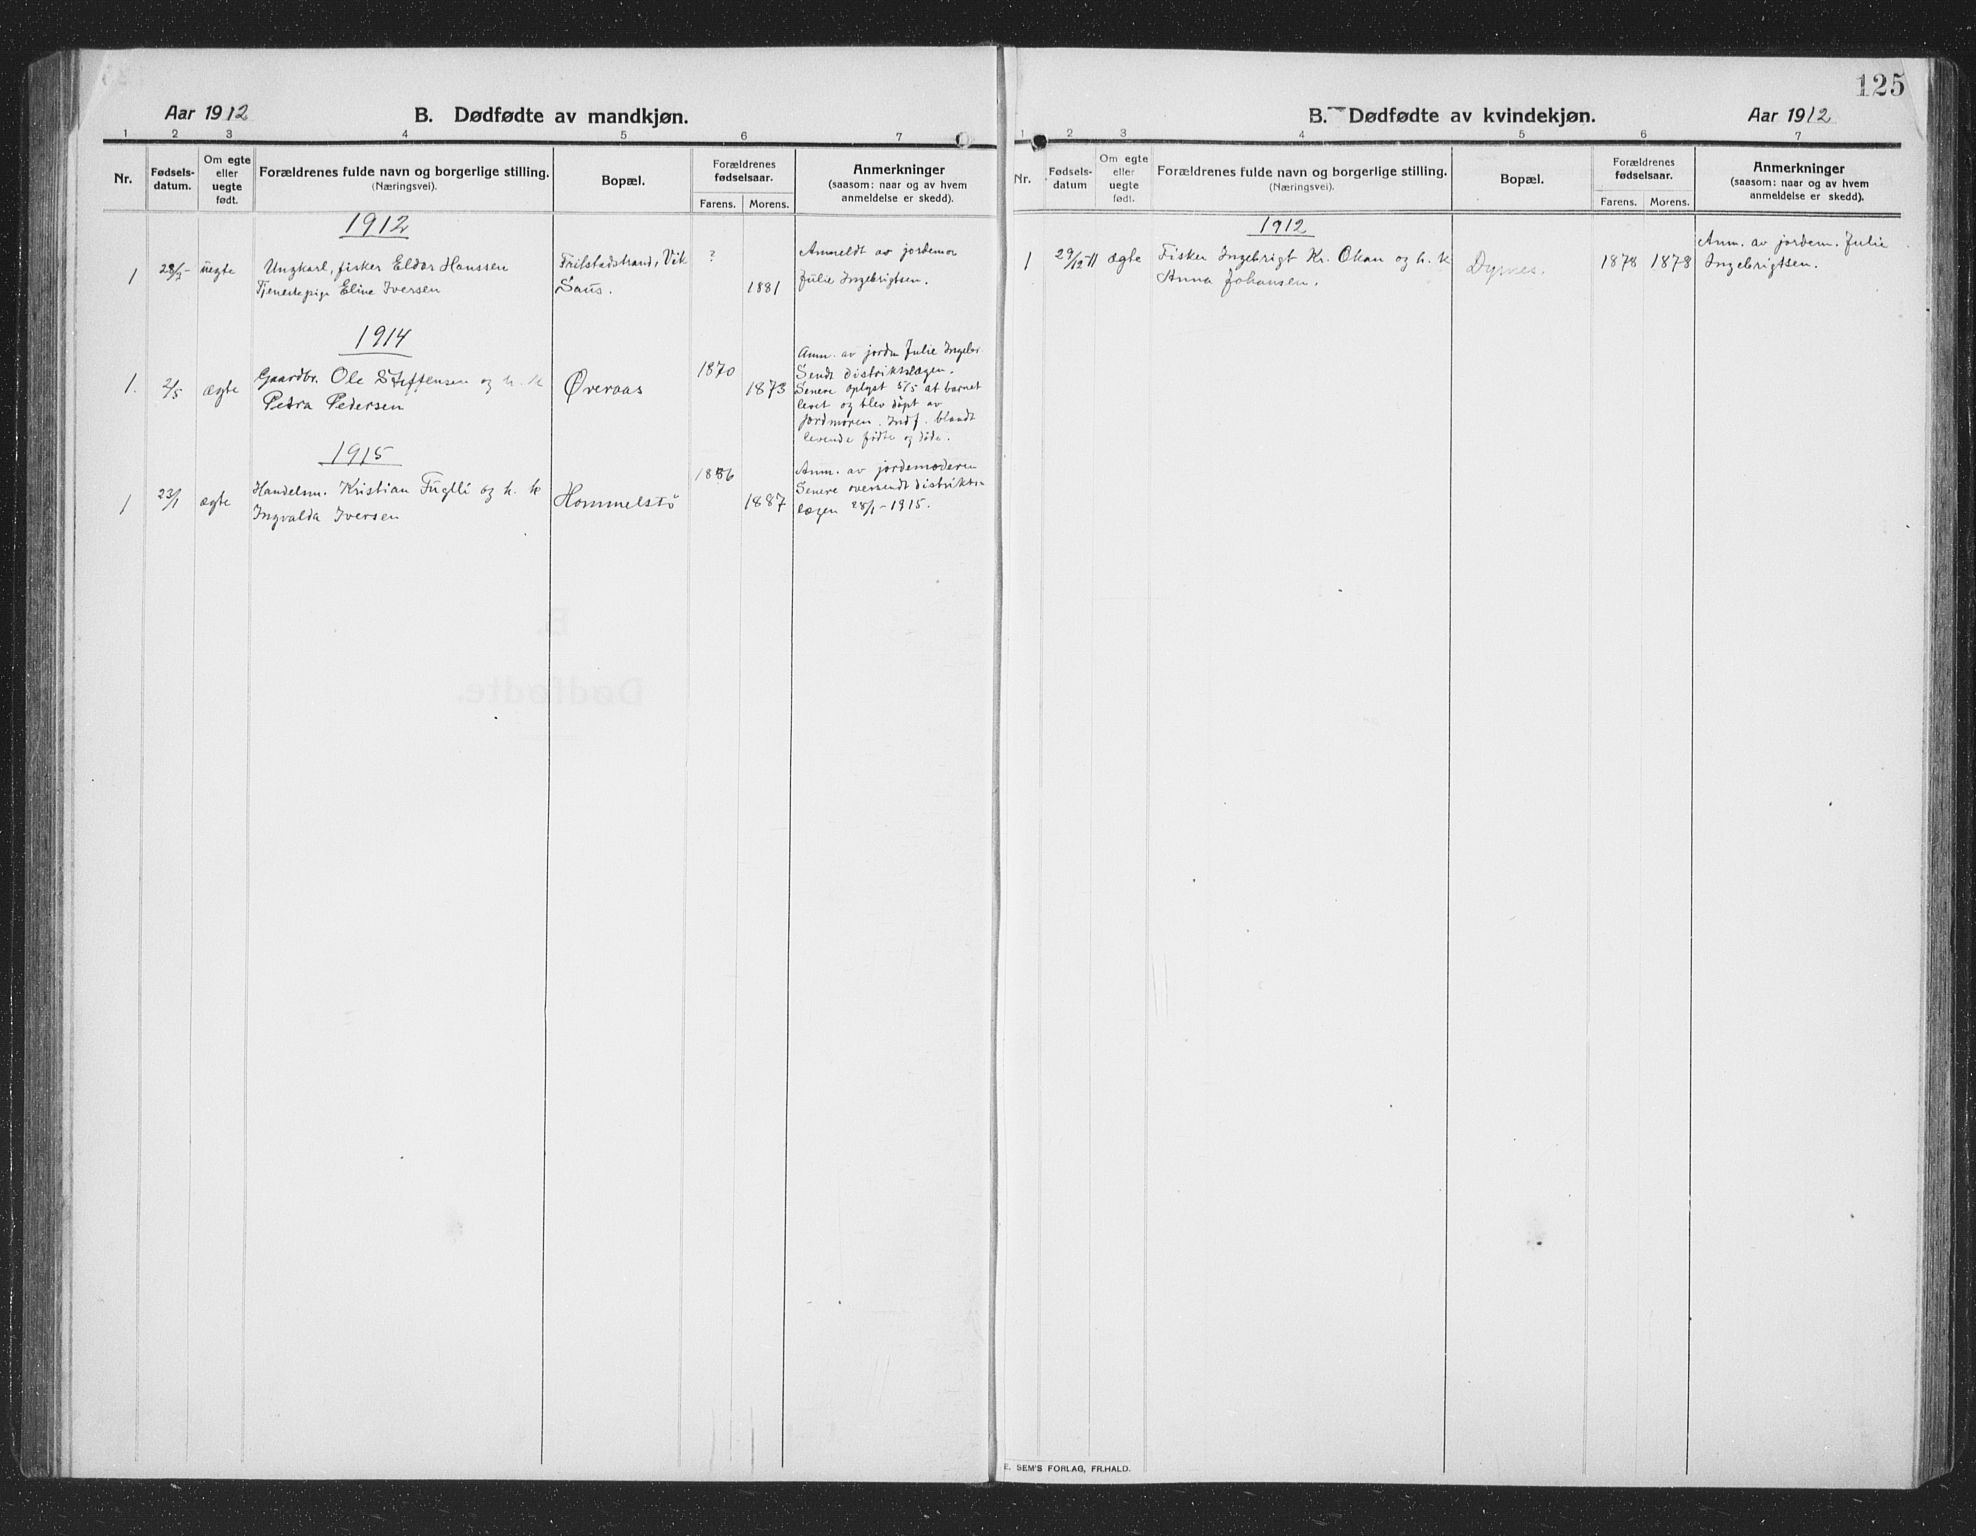 Aar 1912
B. Dødfødte av mandkjøn.
1 2 3 4 5 6 7
Nr.
Fødsels-
datum.
Om egte
eller
uegte
født.
Forældrenes fulde navn og borgerlige stilling.
(Næringsvei).
Bopæl.
Forældrenes
fødselsaar.
Farens. Morens.
Anmerkninger
(saasom: naar og av hvem
anmeldelse er skedd).
1912
1 uegte
Ungkarl, fisker Eldor Hanssen
Tjenestepige Eline Iversen
Vik
Saus.
?
1881
Anmeldt av jordemor
Julie Ingebrigtsen.
1914
1. 2/5 ægte
Gaardbr. Ole Steffensen og h. k
Petra Pedersen
Øveraas
1870
1873
Anm. av jordm Julie Ingebr.
Sendt distriktslægen.
Senere oplyst 5/5 at barnet
levet og blev døpt av
jordmoren. Indf. blandt
levende fødte og døde.
1915
1 23/1 ægte
Handelsm. Kristian Fuglli og h. k
Ingvalda Iversen
Hommelstø
1886
1887
Anm. av jordemoderen
Senere oversendt distrikts-
lægen 28/1-1915.
125
B. Dødfødte av kvindekjøn.
Aar 1912
1 2 3 4 5 6 7
Nr.
Fødsels-
datum
Om egte
eller
uegte
født.
Forældrenes fulde navn og borgerlige stilling.
(Næringsvei).
Bopæl.
Forældrenes
fødselsaar.
Farens. Morens.
Anmerkninger
(saasom: naar og av hvem
anmeldelse er skedd).
1912
1 29/12-11 ægte
Fisker Ingebrigt Kr. Okan og h. k
Anna Johansen.
Dyrnes.
1878 1878
Anm. av jordem. Julie
Ingebrigtsen.
E. SEM'S FORLAG, FR.HALD.